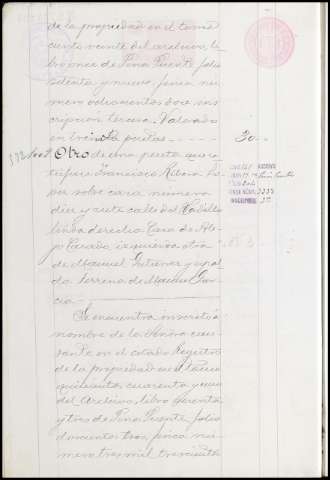 de la propiedad en el tomo
ciento veinte del archivo, li
bro once de Peña Puente folio
setenta y nueve, finca nu
mero ochocientos doce ins
cripcion tercera. Valorado
en treinta pesetas 30
Otro de una peseta que sa
tisface Francisco
por sobre casa número
diez y siete calle del
linda derecha Casa de Ale
jo izquierda otra
de Manuel Gutierrez y espal
da terreno de Manuel Gar
cia
Se encuentra inscrito a
nombre de la Señora caus
sante en el citado Registro
de la propiedad en el tomo
quinientos cuarenta y uno
del Archivo, libro cuarenta
y tres de Peña Puente folio
doscientos tres, finca nu
mero tres mil trescientos